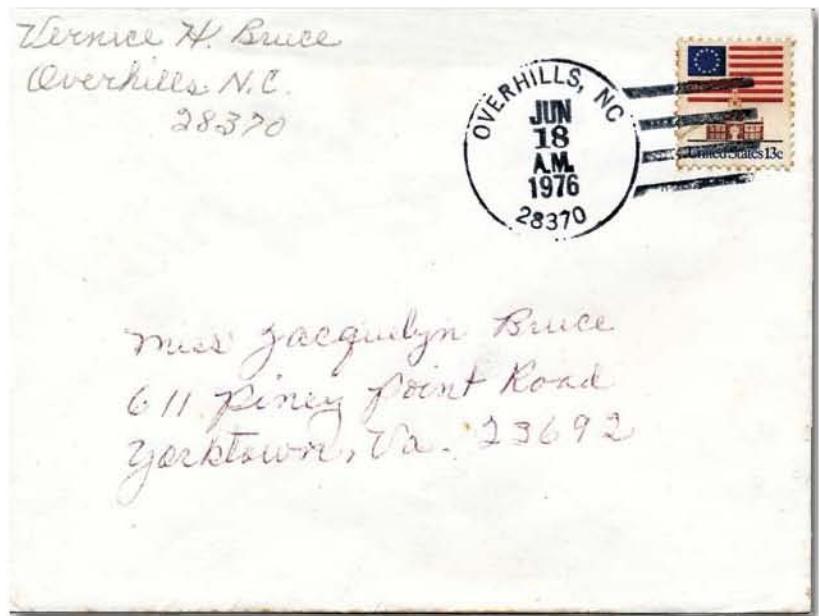 Vernice H. Bruce
Overhills N.C.
28370
OVERHILLS, NC
JUN
18
A.M.
1976
28370
United States 13c
Miss Jacquelyn Bruce
611 Piney Point Road
Yorktown, Va. 23692